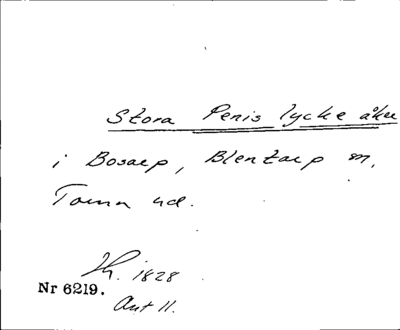 Stora Penis lycke åker
i Bosarp, Blentarp sn,
Torna hd.
Lh. 1828
Nr 6219.
Akt 11.